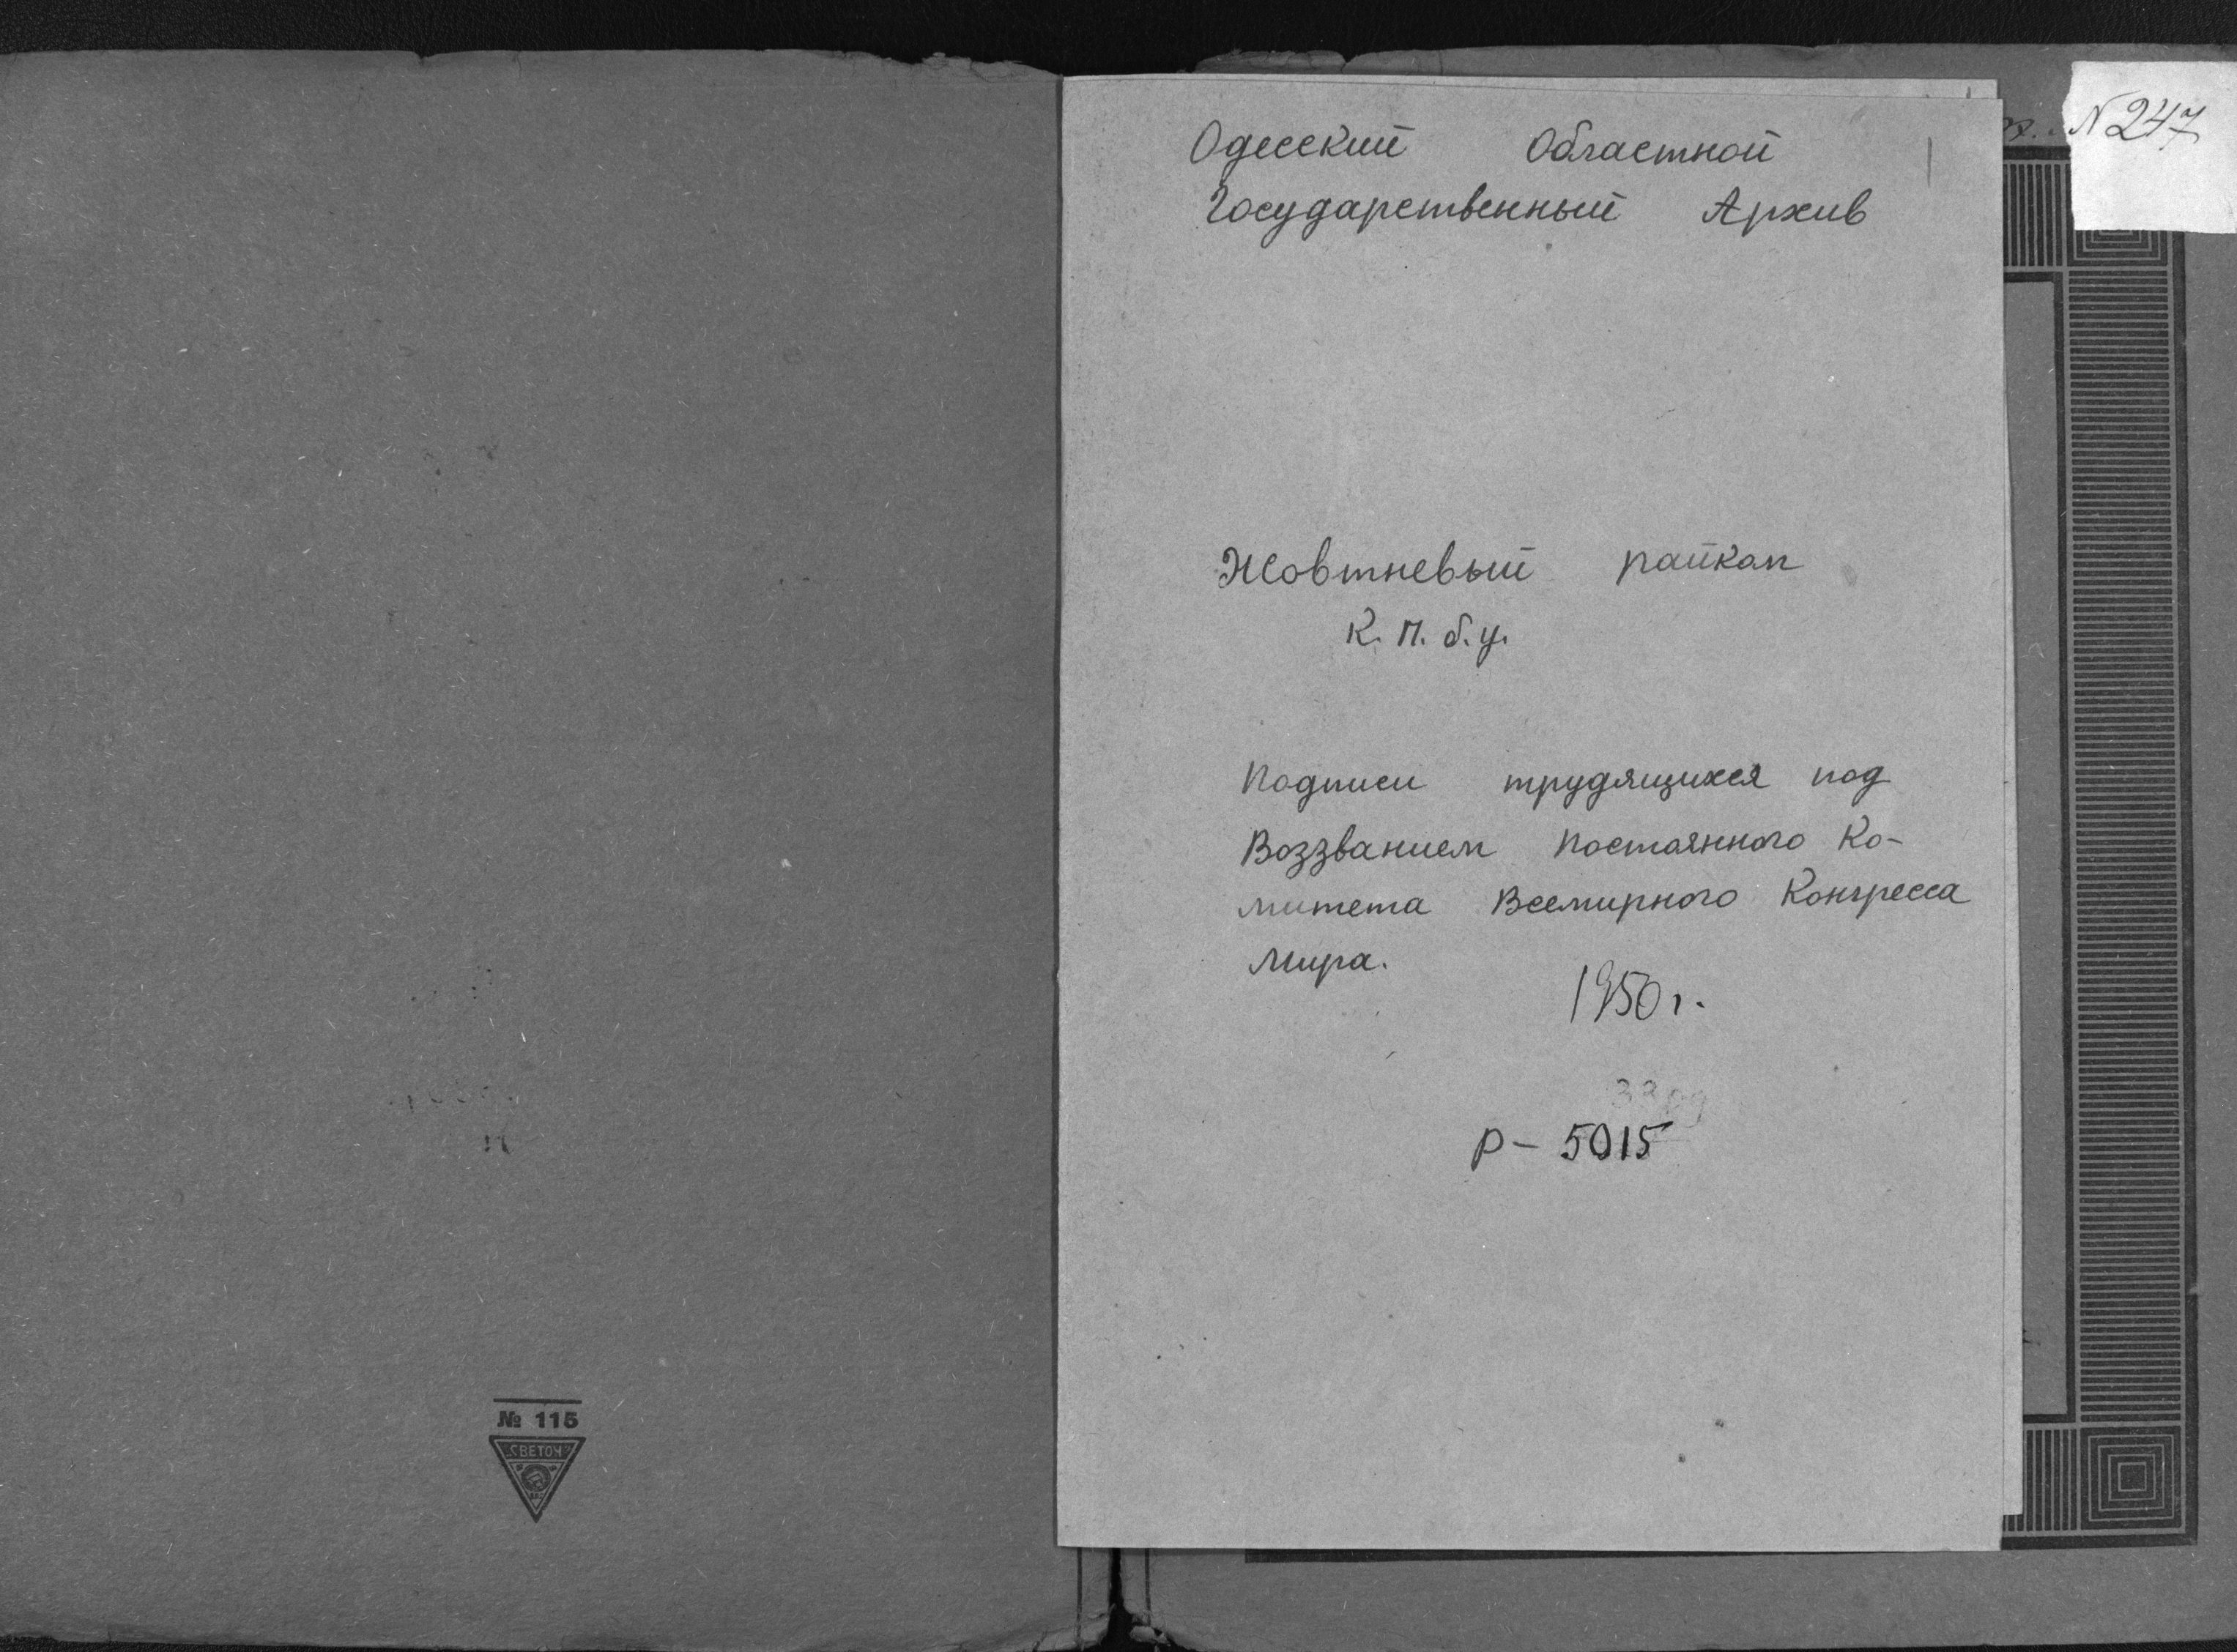 № 115
„СВЕТОЧ"
Одесский Областной
Государственный Архив
Жовтневый райком
К. П. б. у.
Подписи трудящихся под
Воззванием Постоянного Ко-
митета Всемирного Конгресса
Мира.
1950 г.
Р - 5015
N 247